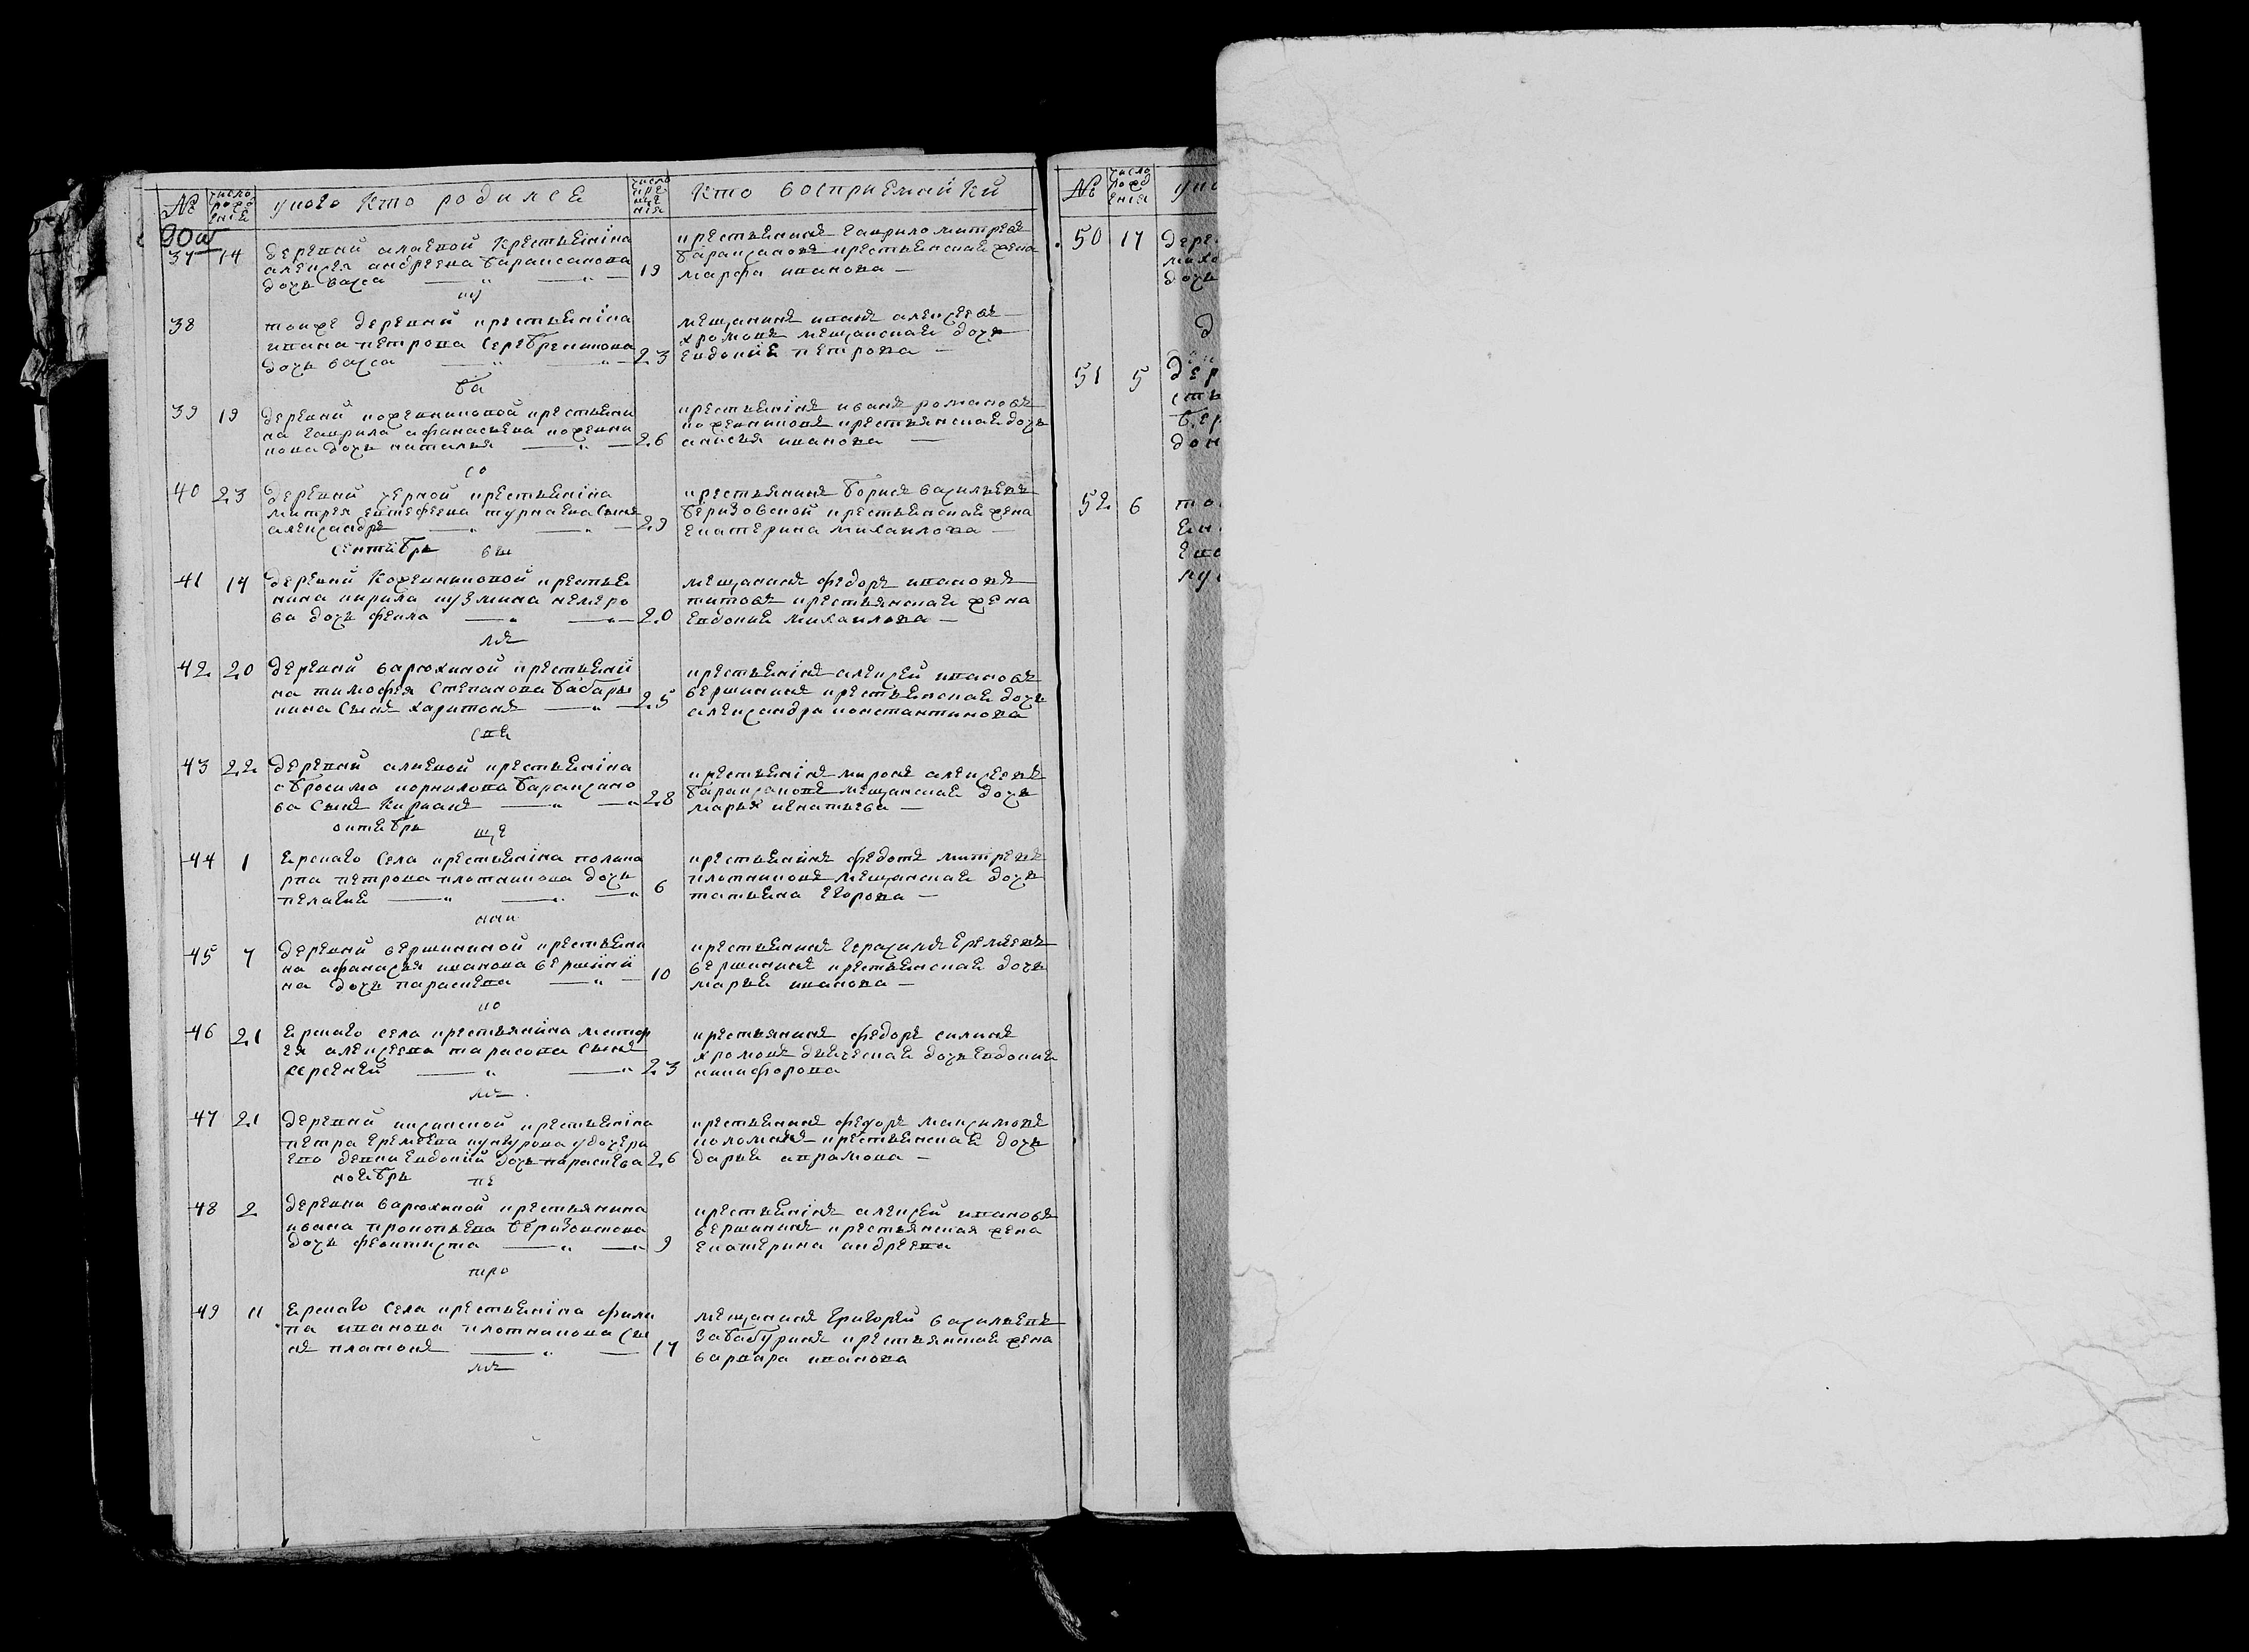 № число рожденія укого кто родилсѧ число крещенія кто восприемайки
37 14 деревни алаевой крестьѧніна
алеѯея андреева бараксанова
дочь васса 19
крестьѧнинъ гаврило митревъ
бараѯановъ крестьѧнскаѧ жена
марфа иванова —
38 тоиже деревни крестьѧніна
ивана петрова серебреникова
дочь васса 23
мещанинъ иванъ алеѯеевъ
хромовъ мещанскаѧ дочь
евдокиѧ петрова —
39 19 деревни кожевниковой крестьѧни
на гаврила афанасьева кожевни
кова дочь наталья 26
крестьѧнінъ иванъ романовъ
кожевниковъ крестьянскаѧ дочь
анисья иванова —
40 23 деревни черной крестьѧніна
митрея евтефеева турнаева сынъ
алеѯандръ 29
крестьянинъ борисъ васильевъ
беризовской крестьѧнскаѧ жена
екатерина михаилова —
сентѧбрь
41 14 деревни кожевниковой крестьѧ
нина кирила кузмина немеро
ва дочь фекла 20
мещанинъ федоръ ивановъ
титовъ крестьянскаѧ жена
евдокиѧ михаилова —
42 20 деревни варюхиной крестьѧни
на тимофея степанова бабары
кина сынъ харитонъ 25
крестьѧнінъ алеѯей ивановъ
вершининъ крестьѧнскаѧ дочь
алеѯандра константинова
43 22 деревни алаевой крестьѧніна
обросима корнилова бараѯано
ва сынъ кирианъ 28
крестьѧнінъ миронъ алеѯеевъ
бараѯановъ мещанскаѧ дочь
марья игнатьева —
октѧбрь
44 1 ѧрскаго села крестьѧніна полика
рпа петрова плотникова дочь
пелагиѧ 6
крестьѧнинъ федотъ митревъ
плотниковъ мещанскаѧ дочь
татьѧна егорова —
45 7 деревни вершининой крестьѧни
на афанасья иванова вершини
на дочь парасѧева 10
крестьѧнинъ герасимъ еремеевъ
вершининъ крестьѧнскаѧ дочь
марьѧ иванова —
46 21 ѧрскаго села крестьянина матф
ея алеѯеева тарасова сынъ
арсеней 23
крестьянинъ федоръ силинъ
хромовъ дѧческаѧ дочь евдокиѧ
никифорова
47 21 деревни киѯинской крестьѧніна
петра еремеева кункурова удочери
ево девки евдокии дочь парасѧева 26
крестьѧнинъ федоръ маѯимовъ
коломинъ крестьѧнскаѧ дочь
дарьѧ аврамова —
ноѧбрь
48 2 деревни варюхиной крестьянина
ивана прокопьева беризовскова
дочь феоктиста 9
крестьѧнінъ алеѯей ивановъ
вершининъ крестьянская жена
екатерина андреева
49 11 ѧрскаго села крестьѧніна фили
па иванова плотникова сы
нъ платонъ 17
мещанинъ григорей васильевъ
забабуринъ крестьянскаѧ жена
варвара иванова
№ число рожденія
50 17 дере
51 5
52 6